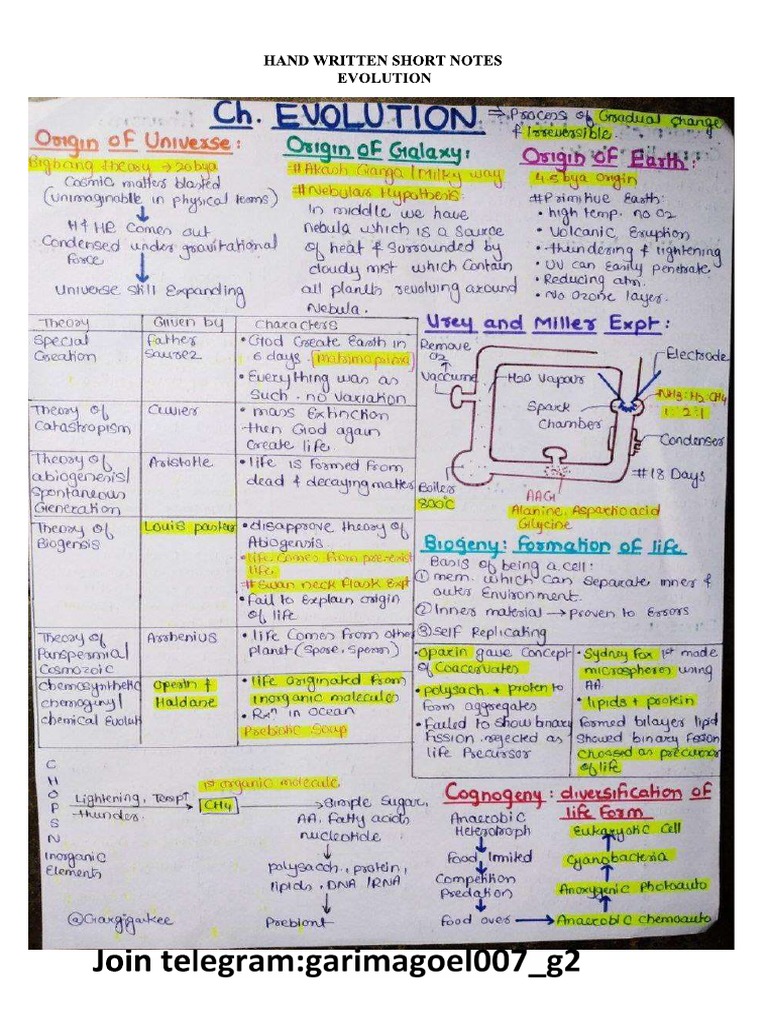 HAND WRITTEN SHORT NOTES
EVOLUTION
Ch. EVOLUTION ⇒ Process of Gradual change
& Irreversible.
Origin of Universe:
Bigbang theory → 20bya
Cosmic matter blasted
(unimaginable in physical terms)
↓
H & He Comes out
Condensed under gravitational
force
↓
Universe skill Expanding
Origin of Galaxy:
#Akash Ganga | Milky way
#Nebular Hypothesis:
In middle we have
nebula which is a source
of heat & surrounded by
cloudy mist which contain
all planets revolving around
Nebula.
Origin of Earth:
4.5 bya Origin
#Primitive Earth:
• high temp. no O2
• Volcanic Eruption
• thundering & lightening
• UV can Easily penetrate
• Reducing atm.
• No ozone layer.
Theory Given by Characters
Special
Creation
father
Saurez
• God Create Earth in
6 days.
• Everything was as
such. no variation
Theory of
Catastropism
Cuvier
• mass Extinction
then God again
Create life.
Theory of
abiogenesis/
Spontaneous
Generation
Aristotle
• life is formed from
dead & decaying matter
Theory of
Biogensis
Louis paster
• disapprove theory of
Abiogensis.
• life comes from pre-exist
life
# Swan neck flask Expt
• Fail to Explain origin
of life
Theory of
Panspermia/
Cosmozoic
Arrhenius
• life Comes from other
planet (Spore, Sperm)
chemosynthetic
chemogny/
chemical Evolut
Operin &
Haldane
• life originated from
inorganic molecules
• Rxn in Ocean
Prebiotic Soup
Urey and Miller Expt:
Remove
O2
↑
Vaccume
H2O Vapour
Electrode
NH3:H2:CH4
1:2:1
Spark
chamber
Condensor
#18 Days
Boiler
800°C
AAG1
Alanine, Aspartic acid
Glycine
Biogeny: Formation of life
Basis of being a cell:
① mem. which can separate inner &
outer Environment.
② Inner material → proven to Errors
③ self Replicating
• Oparin gave Concept
of Coacervates
• polysach. + protein to
form aggregates
• Failed to show binary
fission. rejected as
life Precursor
• Sydney Fox 1st made
microspheres using
AA.
• lipids + protein
formed bilayer lipid
Showed binary fission
choosed as precursor
of life
C
H
O
P
S
N
Inorganic
Elements
Lightening, Temp↑
thunder.
1st organic molecule
CH4
Simple Sugar,
AA, fatty acids
nucleotide
↓
polysacch., protein,
lipids, DNA | RNA
↓
Prebiont
Cognogeny: diversification of
life Form
Anaerobic
Heterotroph
↓
Food limited
↓
Competition
Predation
↓
Food over → Anaerobic chemoauto
↑
Anoxygenic Photoauto
↑
Cyanobacteria
↑
Eukaryotic Cell
@Gargigarkee
Join telegram:garimagoel007_g2